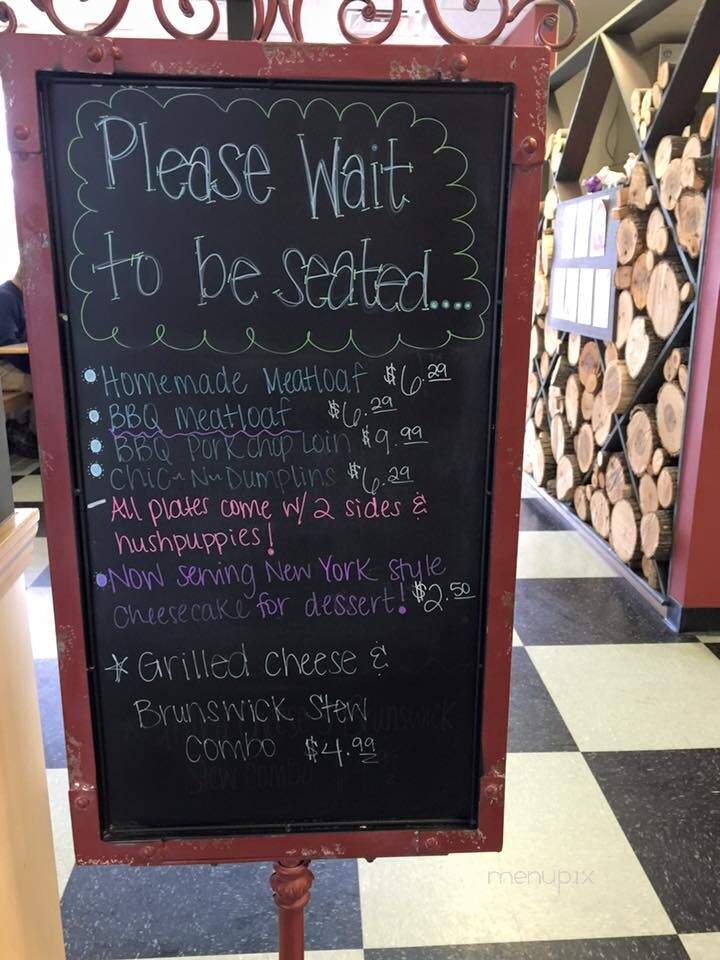 Please Wait
to be seated....
Homemade Meatloaf $6.29
BBQ meatloaf $6.29
BBQ Porkchop Loin $9.99
Chic-N-Dumplins $6.29
- All plates come w/ 2 sides &
hushpuppies!
Now serving New York style
cheesecake for dessert! $2.50
* Grilled cheese &
Brunswick Stew
Combo $4.99
menupix